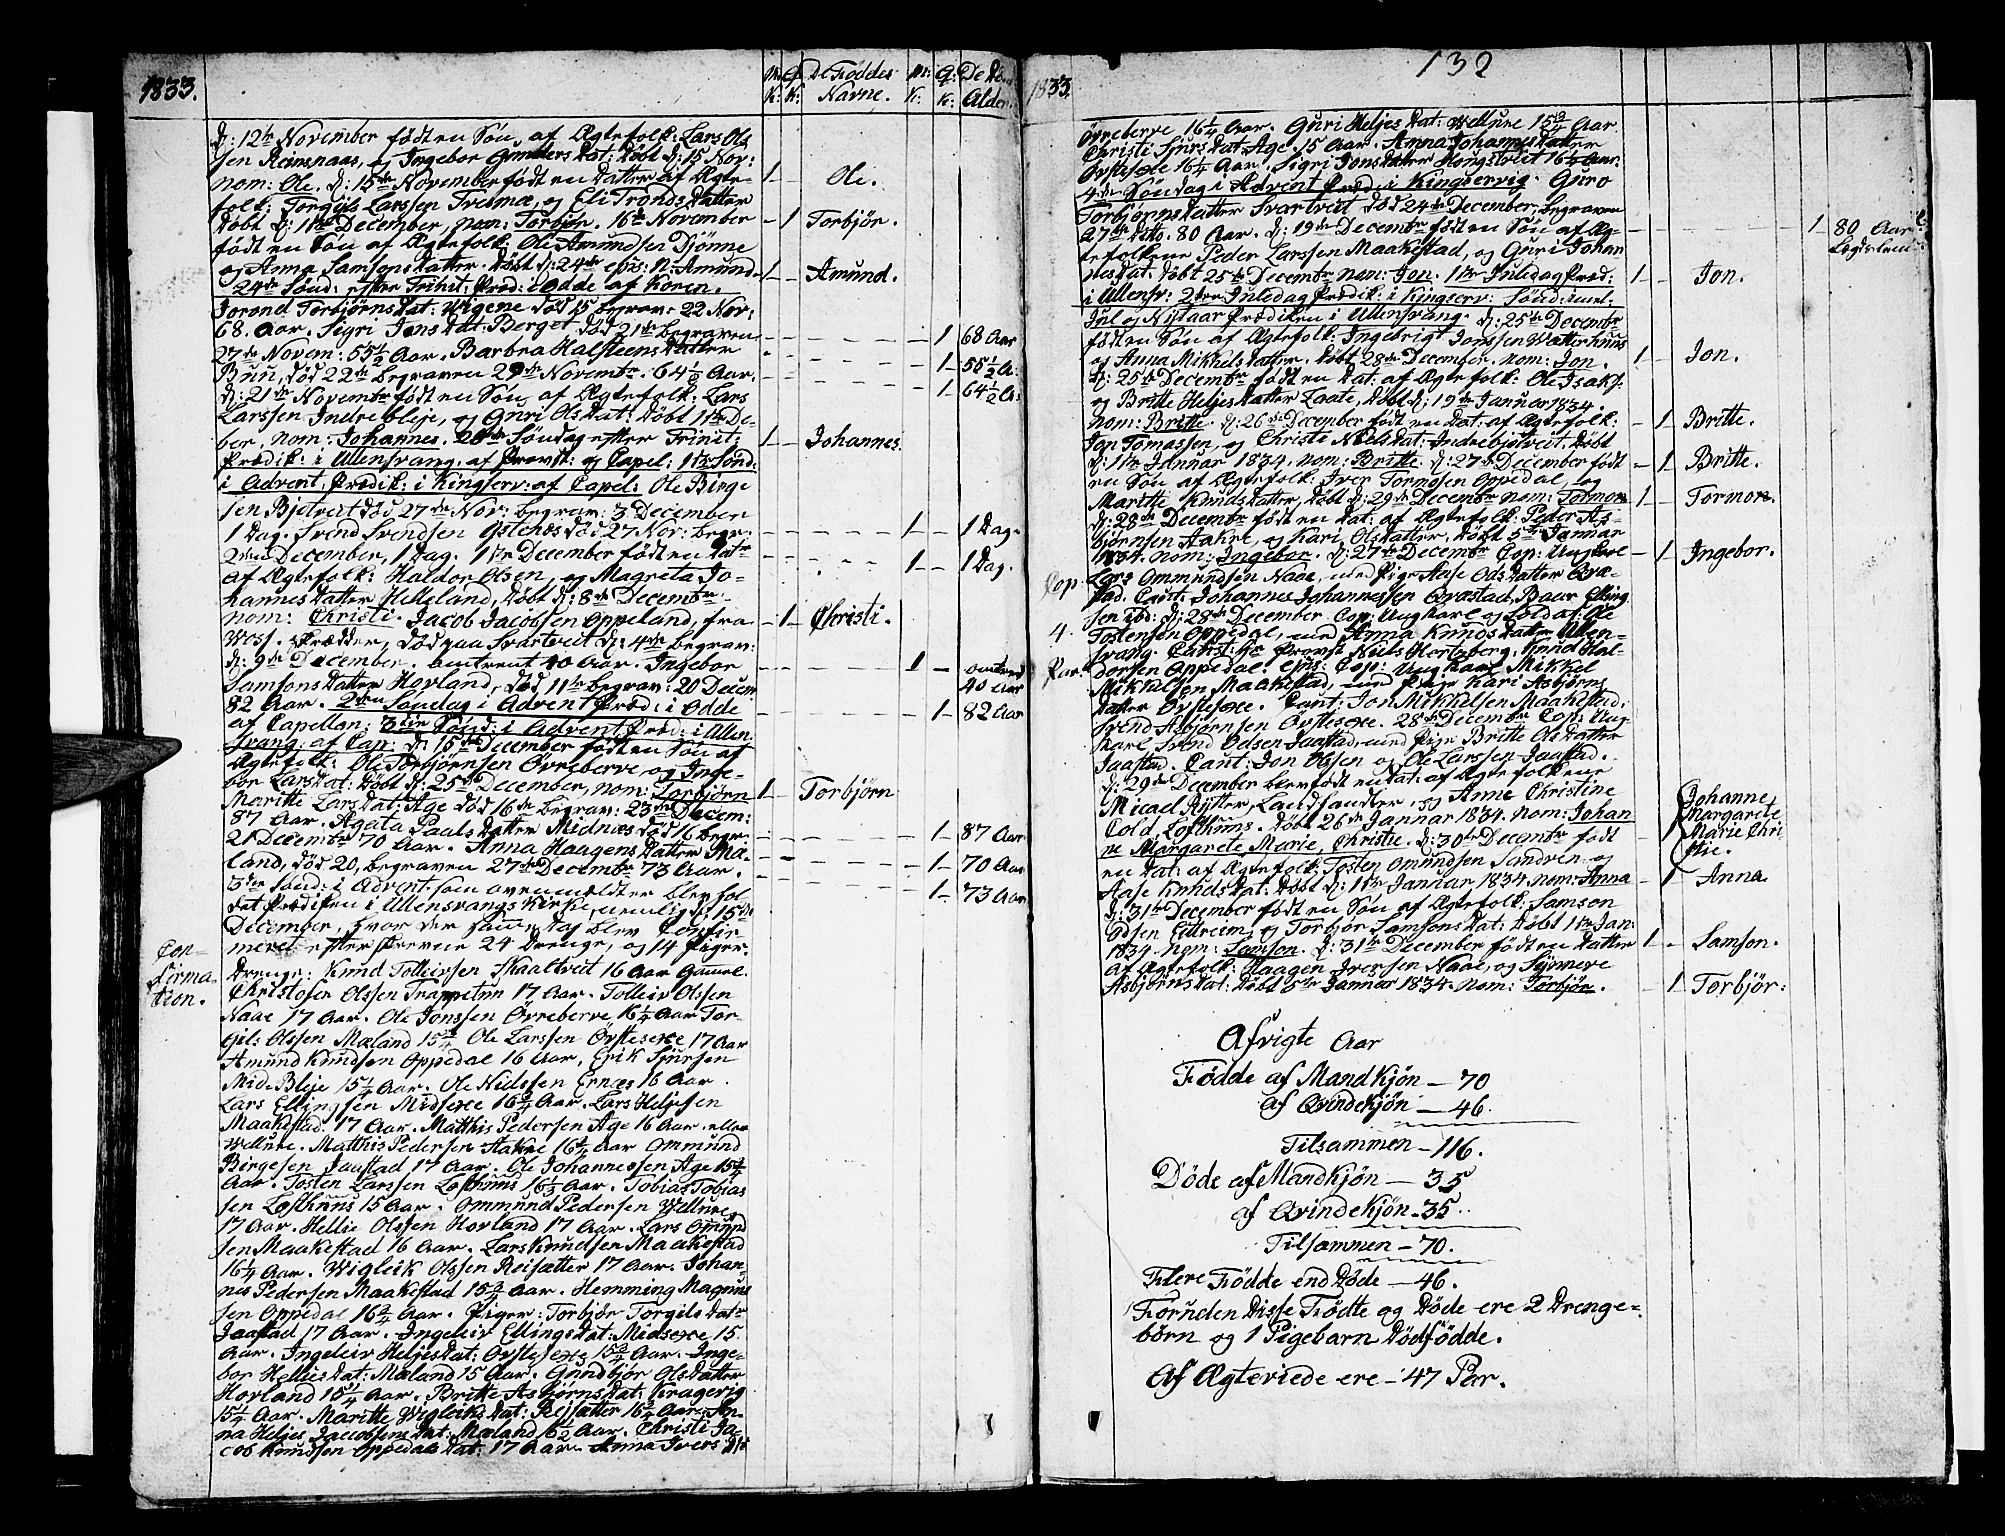 1833.
M: K: Q K: De Föddes Navne. M: K: Q: K: De Alder.
d: 12te November födt en Sön, af Ægtefolk: Lars Ole
sen Reisenaas, og Ingebor Gunders Dat: Döbt d: 15 Nov:
nom: Ole. d: 15de November födt en Datter af Ægte-
folk: Torgiils Larssen Tredmæ, og Eli Tronds Datter
Döbt d: 1ste December, nom: Torbjör. 16de November
födt en Sön af Ægtefolk: Ole Amundsen Djönne
og Anna Samsons Datter. Döbt d: 24de ejus: N: Amund.
24de Sönd: efter Trinit: Præd: i Odde af Koren.
Jorond Torbjörns Dat: Wigene död 15 begrav: 22 Nov:
68. Aar. Sigri Jons Dat: Berget död 21de begraven
27de Novem: 55½ Aar. Barbra Halsteens Datter
Buu, död 22de begraven 29de Novembr. 64½ Aar.
d: 21de Novembr födt en Sön af Ægtefolk: Lars
Larssen Indrebleje, og Guri Ols Dat: Döbt 1ste De-
ber, nom: Johannes. 26de Söndag efter Trinit:
Prædik: i Ullensvang, af Provst: og Capel: 1ste Sönd:
i Advent, Prædik: i Kingserv: af Capel: Ole Birge
sen Bjotveit död 27de Nov: begrav: 3 December
1 Dag. Svend Svendsen Opstenes död 27 Nov: begr:
2den December, 1 Dag. 1ste December födt en Datr
af Ægtefolk: Haldor Olsen, og Magreta Jo-
hannes Datter Helleland, Döbt d: 8de Decembr.
nom: Christi. Jacob Jacobsen Oppeland, fra
Woss. Skrædder, död paa Svartveit d: 4de begrav:
d: 9de December. omtrent 40 Aar. Ingebor
Samsons Datter Hovland, död 11te begrav: 20 Decem
82 Aar. 2den Söndag i Advent Præd: i Odde
af Capellan: 3die Sönd: i Advent Præd: i Ullen
svang: af Cap: d: 15de December födt en Sön af
Ægtefolk: Ole Torbjörnsen Övreberve, og Inge-
bor Lars Dat: Döbt d: 25de December, nom: Torbjörn
Maritte Lars Dat: Age död 16de begrav: 23de Decem:
87 Aar. Agata Pauls Datter Midnæs död 16 begr:
21 Decembr 70 Aar. Anna Haagens Datter Mæ-
land, död 20, begraven 27de Decembr 73 Aar.
3die Sönd: i Advent som ovenmeldt er blev hol-
det Prædiken i Ullensvangs Kirke, nemlig d: 15de
December, hvor der samme Dag blev Confir-
meret efter Pröver 24 Drenge, og 14 Piger.
Con-
firma-
tion.
Drenge: Knud Tolleivsen Skaaltveit 16 Aar gammel.
Christofer Olssen Trappetun 17 Aar. Tolleiv Olssen
Naae 17 Aar. Ole Jonssen Övreberve 16¼ Aar Tor-
gils Olssen Mæland 15¾ Ole Larssen Öystesexe 17 Aar
Amund Knudsen Oppedal 16 Aar, Erik Sjursen
Mide Bleje 15¼ Aar. Ole Nielssen Ernæs 16 Aar.
Lars Ellingsen Midsexe 16¾ Aar. Lars Heljesen
Maakestad 17 Aar. Matthis Pedersen Age 16 Aar. eller
Wellure. Matthis Pedersen Aakre 16¼ Aar Ommund
Birgesen Jaastad 17 Aar. Ole Johannessen Age 15¾
Aar. Tosten Larssen Lofthuus 16⅓ Aar. Tobias Tobias
sen Lofthuus 15 Aar. Ommund Pedersen Wellure
17 Aar. Hellie Olssen Hovland 17 Aar. Lars Omund
sen Maakestad 16 Aar. Lars Knudsen Maakestad
16¼ Aar. Wigleik Olssen Reisætter 17 Aar. Johan-
nes Pedersen Maakestad 15¾ Aar. Hemming Magnus
sen Oppedal 16¾ Aar. Piger: Torbjör Torgils Datr
Jaastad 17 Aar. Ingeleiv Ellings Dat: Midsexe 15
Aar. Ingeleiv Heljes Dat: Öystesexe 15¾ Aar. Inge-
bor Hellies Dat: Mæland 15 Aar. Gundbjör Ols Datter
Hovland 15¼ Aar. Britte Asbjörns Dat: Kragevig
15¼ Aar. Maritte Wigleiks Dat: Reisætter 16¾ Aar. An-
na Heljes Jacobsens Dat: Mæland 16½ Aar. Christi Ja-
cob Knudsen Oppedals Dat: 17 Aar. Anna Ivers Dat
1 Ole.
1 Torbjör.
1 Amund.
1 68 Aar
1 55½ A:
1 64½ A:
1 Johannes.
1 1 Dag.
1 1 Dag.
1 Christi.
1 omtrent
40 Aar
1 82 Aar
1 Torbjörn
1 87 Aar
1 70 Aar
1 73 Aar
1833.
132
Övreberve 16¼ Aar. Guri Heljes Dat: Wellure 15¾ Aar
Christi Sjurs Dat: Age 15 Aar. Anna Johannis Datter
Öystesexe 16¼ Aar. Sigri Jons Datter Hongstveit 16½ Aar.
4de Söndag i Advent Præd: i Kingservig. Guro
Torbjörns Datter Svartveit död 24de December, begraven
27de Dito. 80 Aar. d: 19de Decembr födt en Sön af Æg-
tefolkene Peder Larssen Maakestad, og Guri Johan
nes Dat. Döbt 25de Decembr nom: Jon. 1ste Juledag Præd:
i Ullensv: 2den Juledag Prædik: i Kingserv: Sönd: mel.
Jul og Nytaar Prædiken i Ullensvang. d: 25de Decembr
födt en Sön af Ægtefolk: Ingebrigt Jonssen Wætterhuus
og Anna Mikkels Datter. Döbt 28de December. nom: Jon.
d: 25de Decembr födt en Dat: af Ægtefolk: Ole Isaks:
og Britte Heljes Datter Laate, Döbt d: 19de Januar 1834.
nom: Britte. d: 26de December födt en Dat: af Ægtefolk:
Jon Tomassen, og Christi Niels Dat: Indrebjotveit. Döbt
d: 11te Januar 1834. nom: Britte. d: 27de December födt
en Sön af Ægtefolk: Iver Tormosen Oppedal, og
Maritte Knuds Datter, Döbt d: 29de Decembr nom: Tormon
d: 28de Decembr födt en Dat: af Ægtefolk: Peder As-
björnsen Aakre, og Kari Ols Datter. Döbt 5te Januar
1834. nom: Ingebor. d: 27de Decembr Cop: Ungkarl
Cop.
Lars Ommundsen Naae, med Pige Aase Ods Datter Qvæ-
stad. Caut. Johannes Johannessen Qvæstad, Baar Elling
sen ibd: d: 28de December Cop: Ungkarl og Soldat: Ole
4.
Tostensen Oppedal, med Anna Knuds Datter Ullen-
svang. Caut: Hr Provst Niels Hertzberg, Knud Hal-
Par.
dorsen Oppedal. ejus: Cop: Ungkarl Mikkel
Mikkelsen Maakestad, med Pige Kari Asbjörns
Datter Öystesexe. Caut: Jon Mikkelsen Maakestad:
Svend Asbjörnsen Öystesexe. 28de Decembr Cop: Ung-
karl Svend Odsen Jaastad, med Pige Britte Ols Datter
Jaastad. Caut: Jon Olsen og Ole Larssen Jaastad.
d: 29de December blev födt en Dat: af Ægtefolkene
Micael Rytter, Landhandler, og Anne Christine
Cold, Lofthuus. Döbt 26de Januar 1834. nom: Johan
ne Margarete Marie, Christie. d: 30te Decembr födt
en Dat: af Ægtefolk: Tosten Omundsen Sandven og
Aase Knuds Dat: Döbt d: 1ste Januar 1834. nom: Anna
d: 31te December födt en Sön af Ægtefolk: Samson
Odsen Eitreim, og Torbjör Samsons Dat: Döbt 1ste Jan:
1834. nom: Samson. d: 31te December födt en Datter
af Ægtefolk: Haagen Iversen Naae, og Synneve
Asbjörns Dat: Döbt 5te Januar 1834. nom: Torbjör.
1 80 Aar
Lægdslem
1 Jon.
1 Jon.
1 Britte.
1 Britte.
1 Tormon.
1 Ingebor.
1 Johanne
Margarete
Marie Chri
stie.
1 Anna
1 Samson.
1 Torbjör:
Afvigte Aar
Födde af Mandkjön — 70
af Qvindekjön — 46.
Tilsammen — 116.
Döde af Mandkjön — 35
af Qvindekjön — 35.
Tilsammen — 70.
Flere Födde end Döde — 46.
Foruden disse Födte og Döde ere 2 Drenge-
börn og 1 Pigebarn Dödfödde.
Af Ægteviede ere — 47 Par.